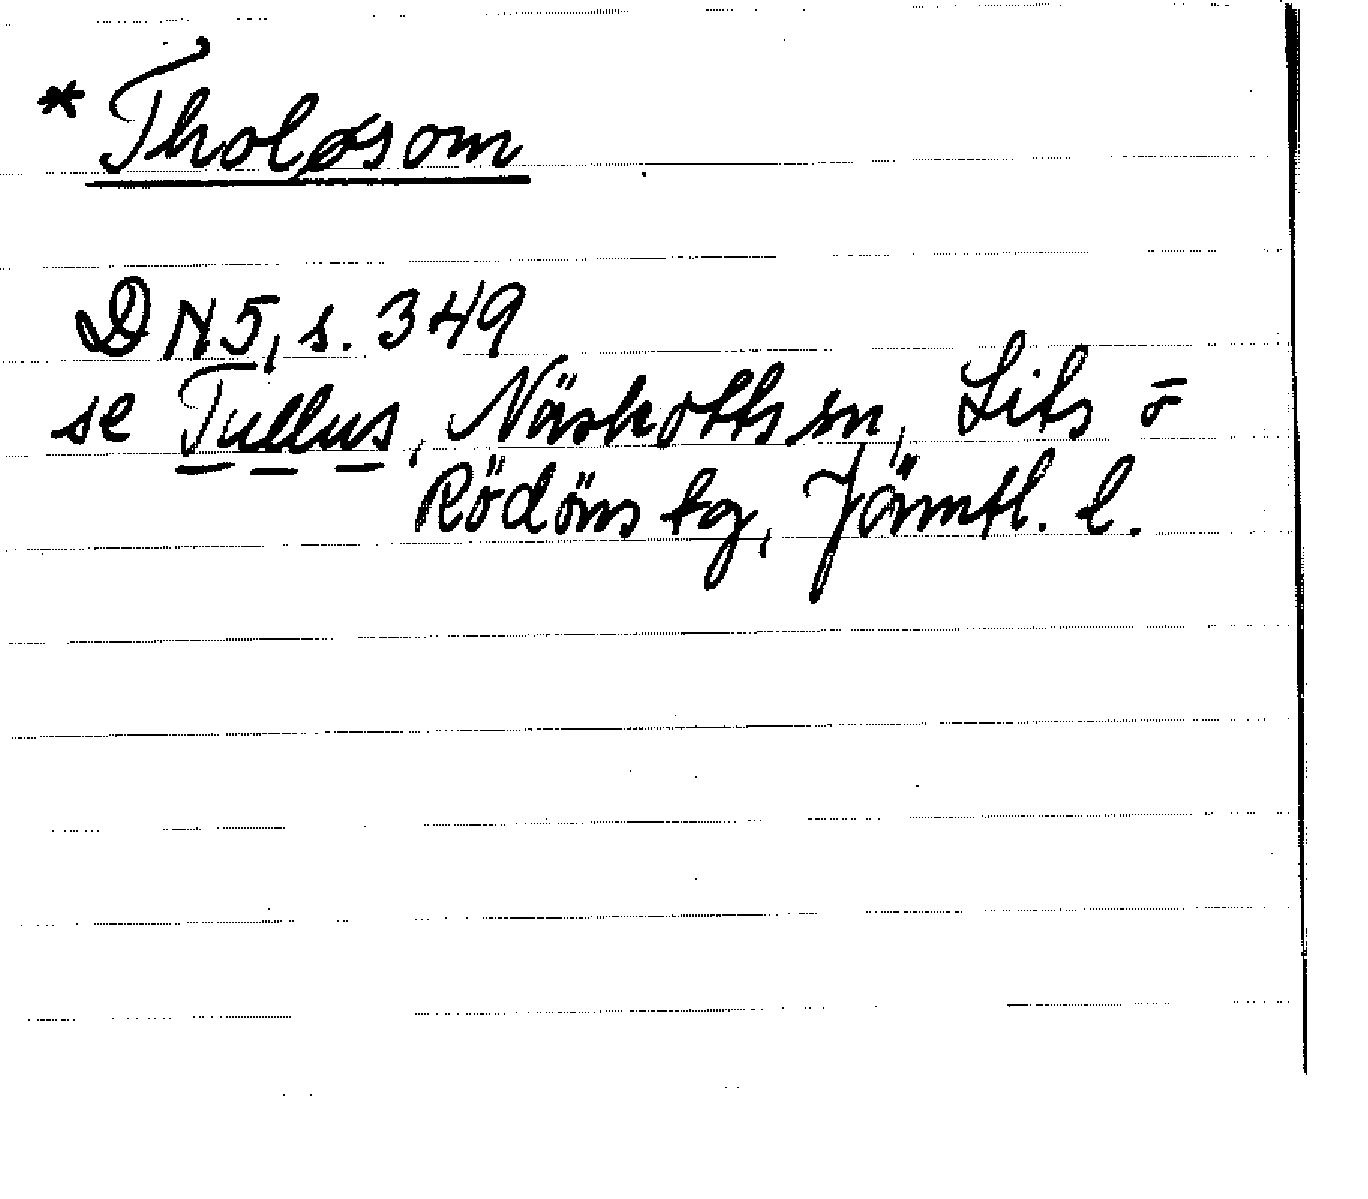 * Tholøsom
DN 5, s. 349
se Tullus, Näskotts sn, Lits o
Rödöns tg, Jämtl. l.